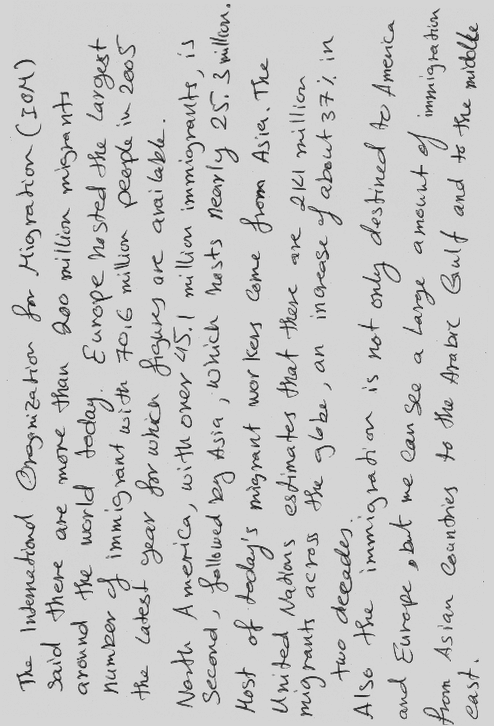 The International Oraganization for Migration (IOM)
said there are more than 200 million migrants
around the world today. Europe hosted the largest
number of immigrant with 70.6 million people in 2005
the latest year for which figures are available.
North America, with over 45.1 million immigrants, is
Second, followed by Asia, which hosts nearly 25.3 million.
Most of today's migrant workers come from Asia. The
United Nations estimates that there are 214 million
migrants across the globe, an increase of about 37% in
two decades
Also the immigration is not only destined to America
and Europe, but we can see a large amount of immigration
from Asian countries to the Arabic Gulf and to the middle
east.